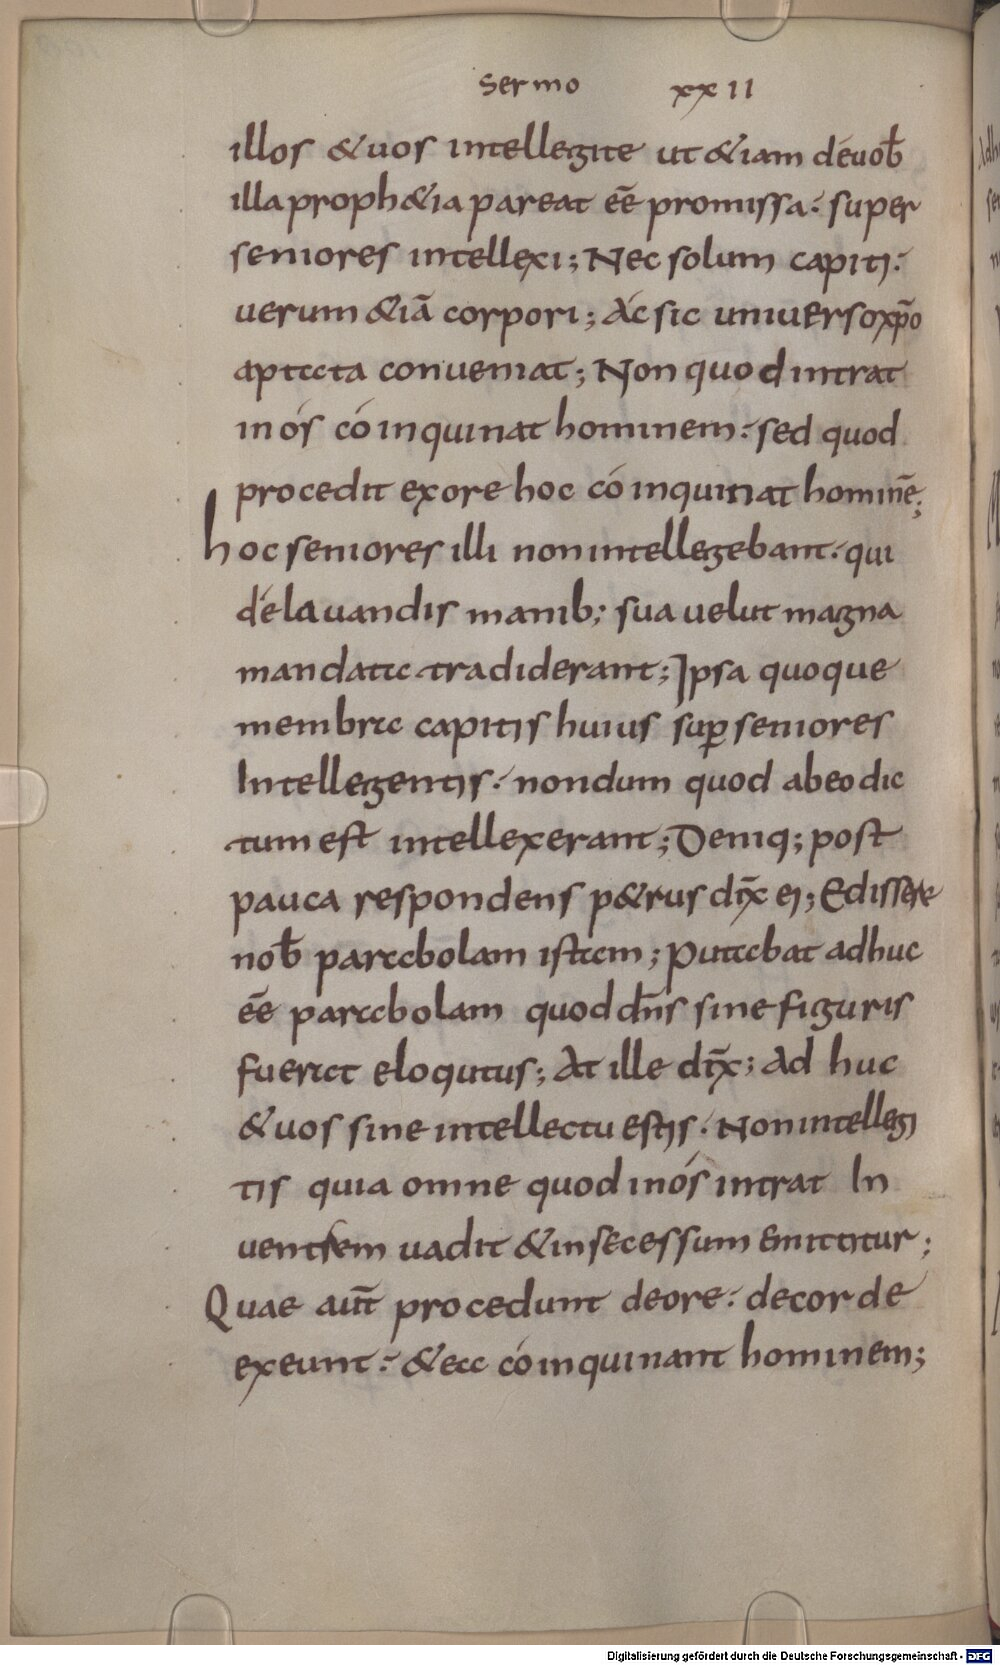 Sermo xxII
illos & uos intellegite ut &iam deuob̄
illa proph&ia pareat eē promissa; super
seniores intellexi; Nec solum capiti;
uerum &iā corpori; Ac sic uniuerso xp̄o
aptata conueniat; Non quod intrat
in os coinquinat hominem; sed quod
procedit ex ore hoc coinquinat hominē;
hoc seniores illi non intellegebant; qui
de lauandis manib; sua uelut magna
mandata tradiderant; Ipsa quoque
membra capitis huius suꝑ seniores
Intellegentis; nondum quod ab eo dic
tum est intellexerant; Deniq; post
pauca respondens p&rus dīx ei; Edissere
nob̄ parabolam istam; Putabat adhuc
eē parabolam quod dn̄s sine figuris
fuerat eloqutus; At ille dīx; Ad huc
& uos sine intellectu estis. Non intellegi
tis quia omne quod in os intrat In
uentrem uadit & in secessum emittitur;
Quae aut̄ procedunt de ore; de corde
exeunt; & ea coinquinant hominem;
Digitalisierung gefördert durch die Deutsche Forschungsgemeinschaft - DFG